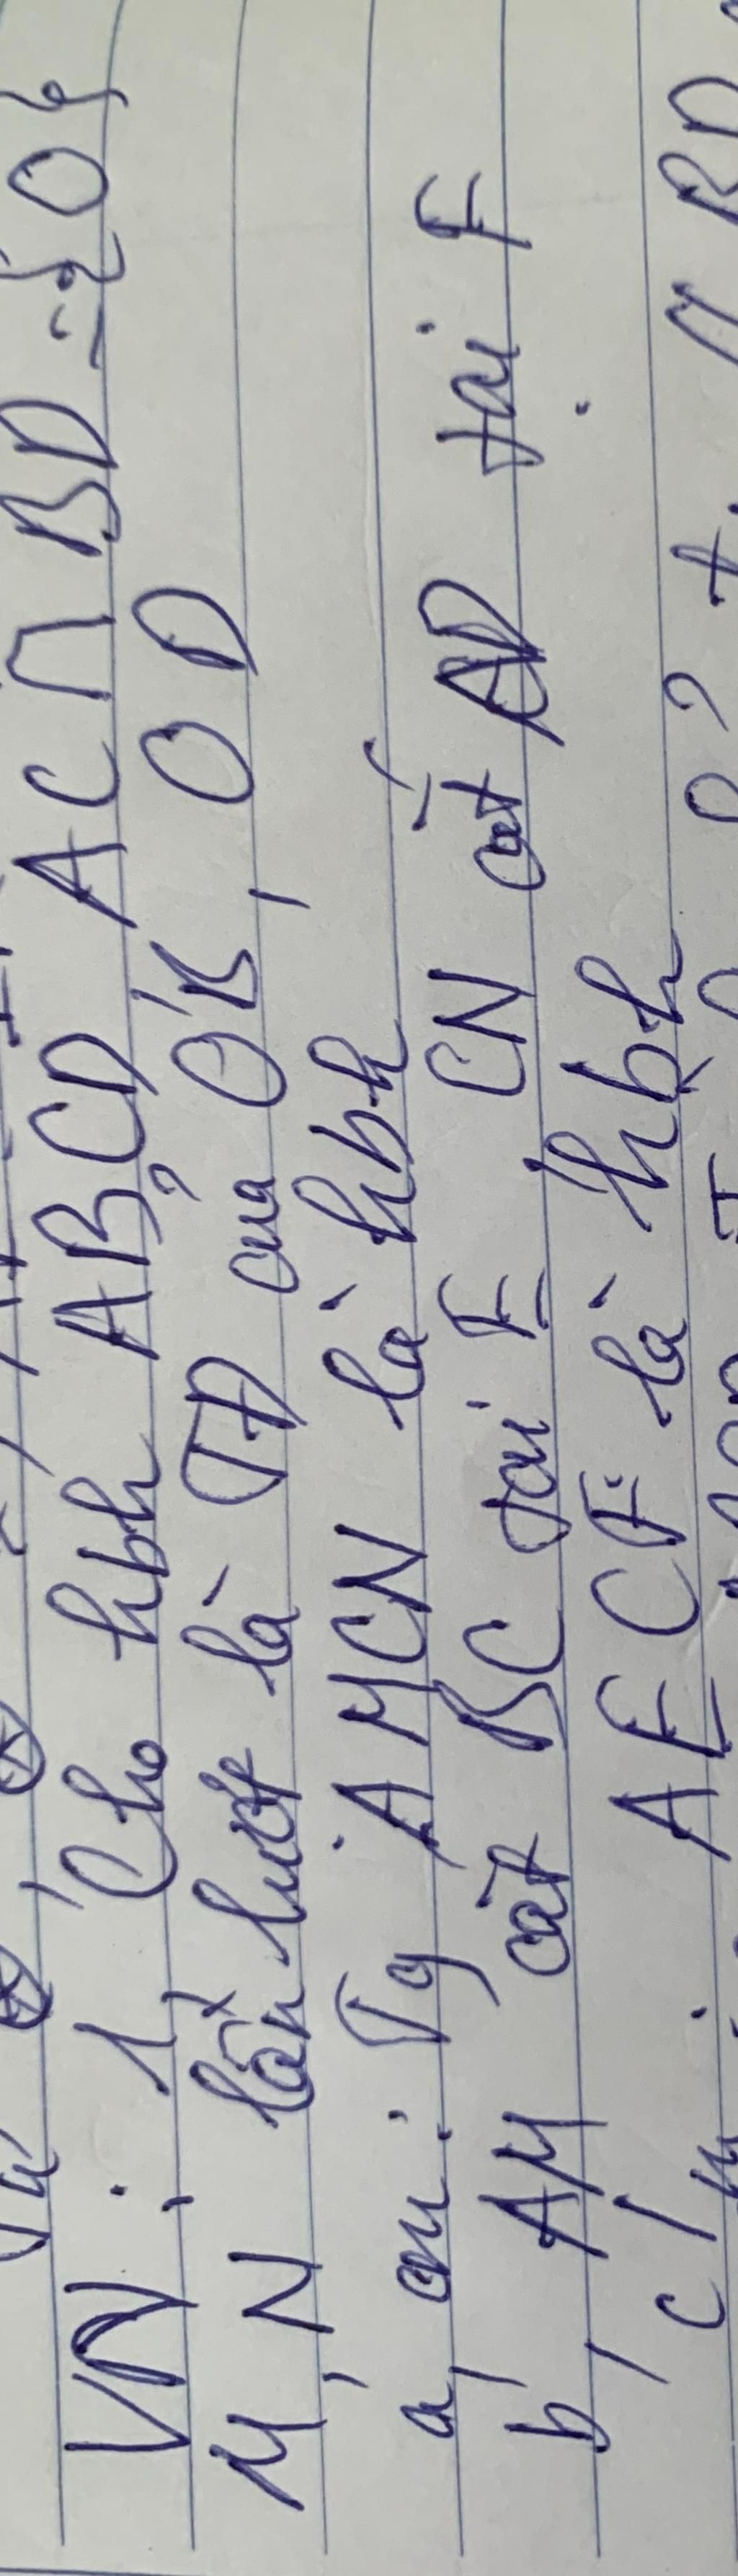 VN: 1, Cho hbh ABCD AC ∩ BD = {O}
M, N lần lượt là TĐ của OB, OD
a, cm: Tg AMCN là hbh
b, AM cắt BC tại E, CN cắt AD tại F
c/m AECF là hbh